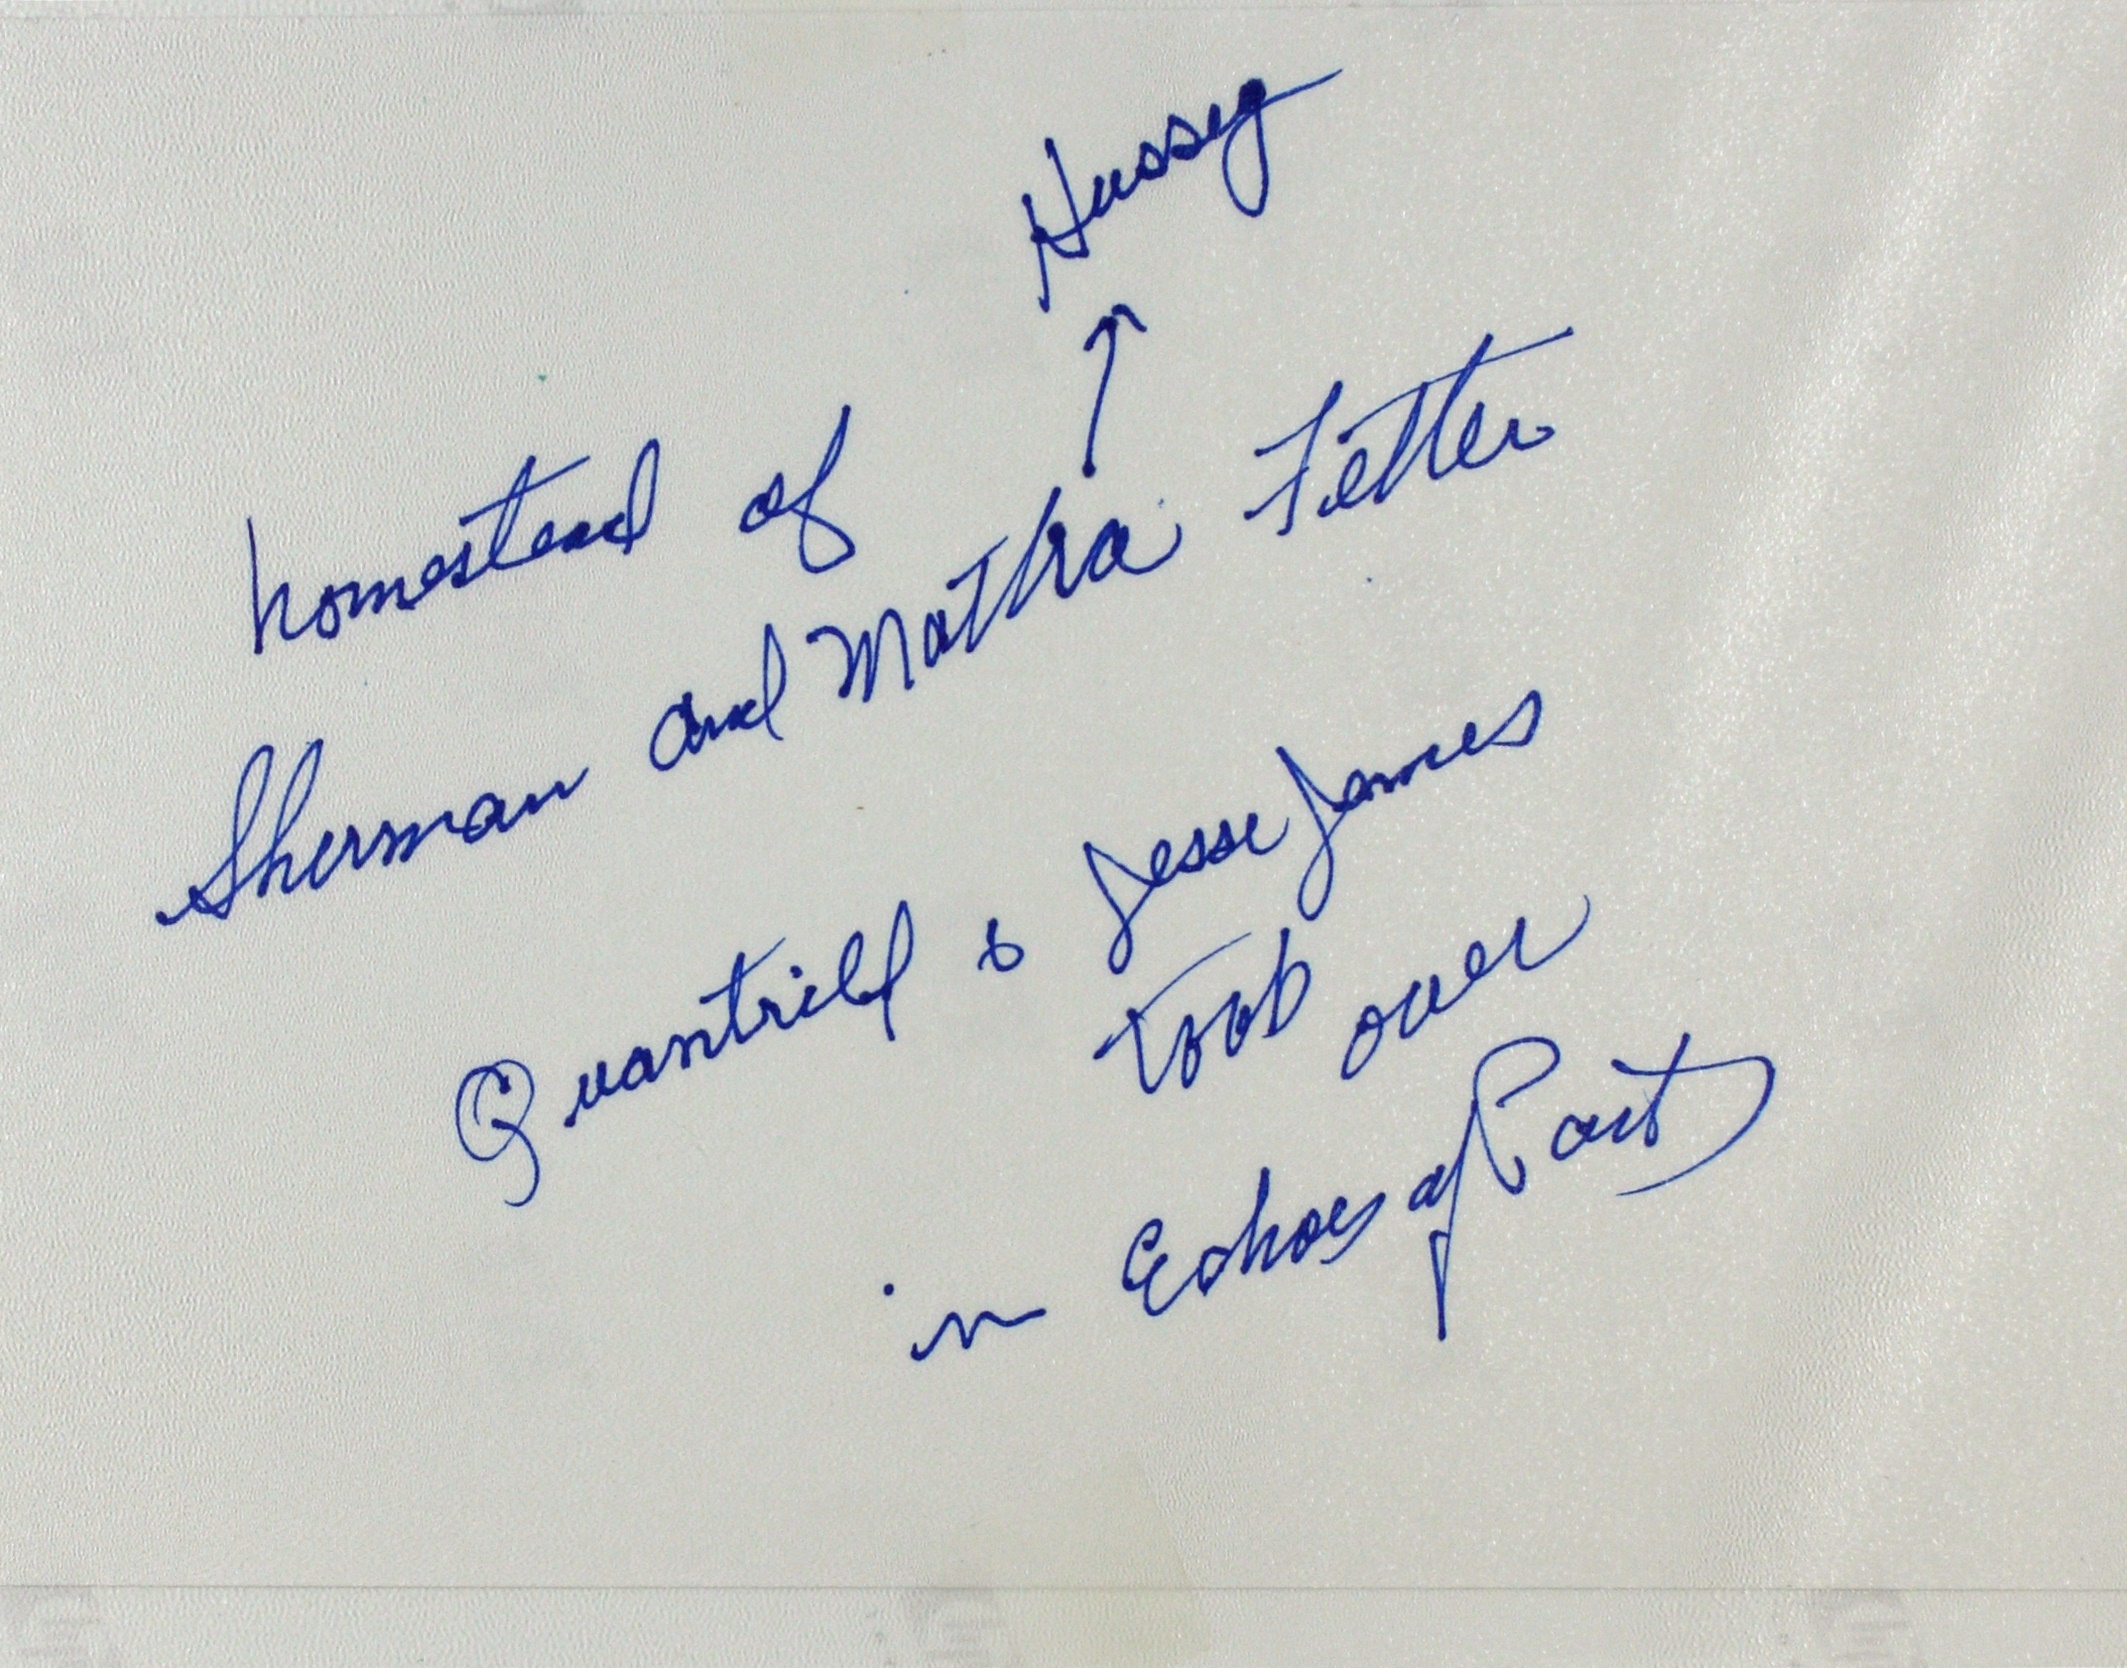 Hussey
↑
homestead of
Sherman and Matha Fetter
Quantrill & Jesse James
took over
in Echoes of Past